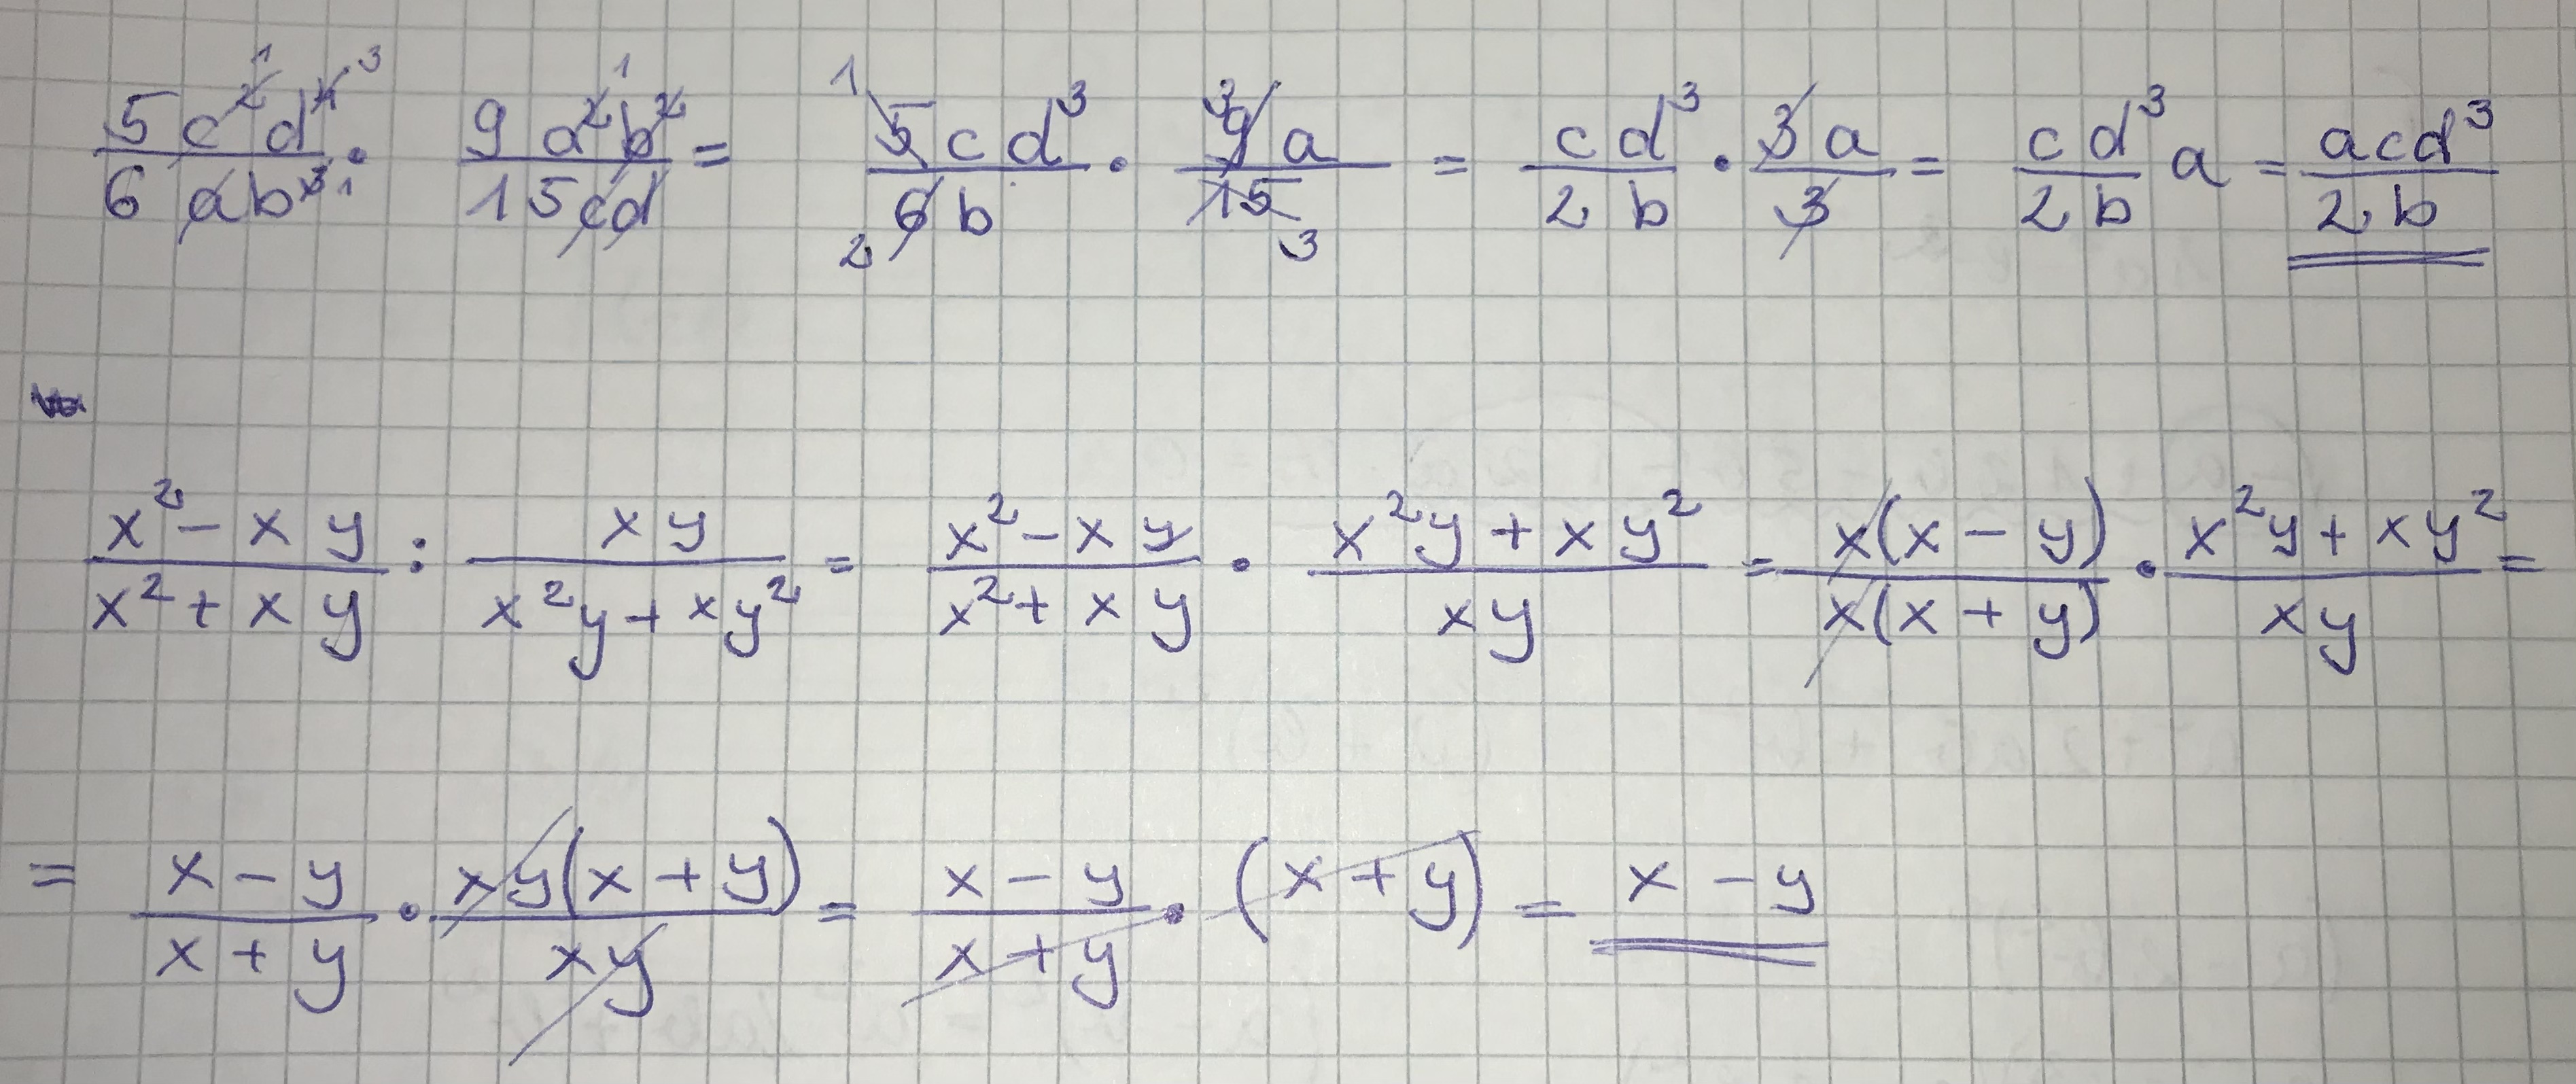 5c²d⁴/6ab³ · 9a²b²/15cd = 5cd³/6b · 9a/15 = cd³/2b · 3a/3 = cd³/2b a = acd³/2b
x² - xy/x² + xy : xy/x²y + xy² = x² - xy/x² + xy · x²y + xy²/xy = x(x - y)/x(x + y) · x²y + xy²/xy =
= x - y/x + y · xy(x + y)/xy = x - y/x + y · (x + y) = x - y